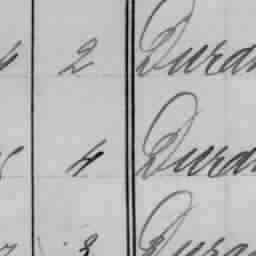 2 Duran
4 Duran
3 Duran